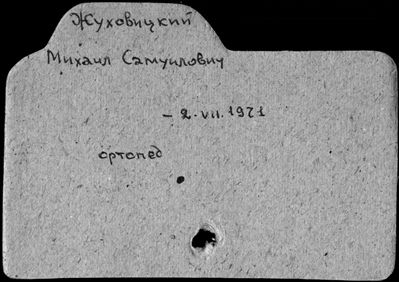 Жуховицкий
Михаил Самуилович
– 2.VII.1971
ортопед